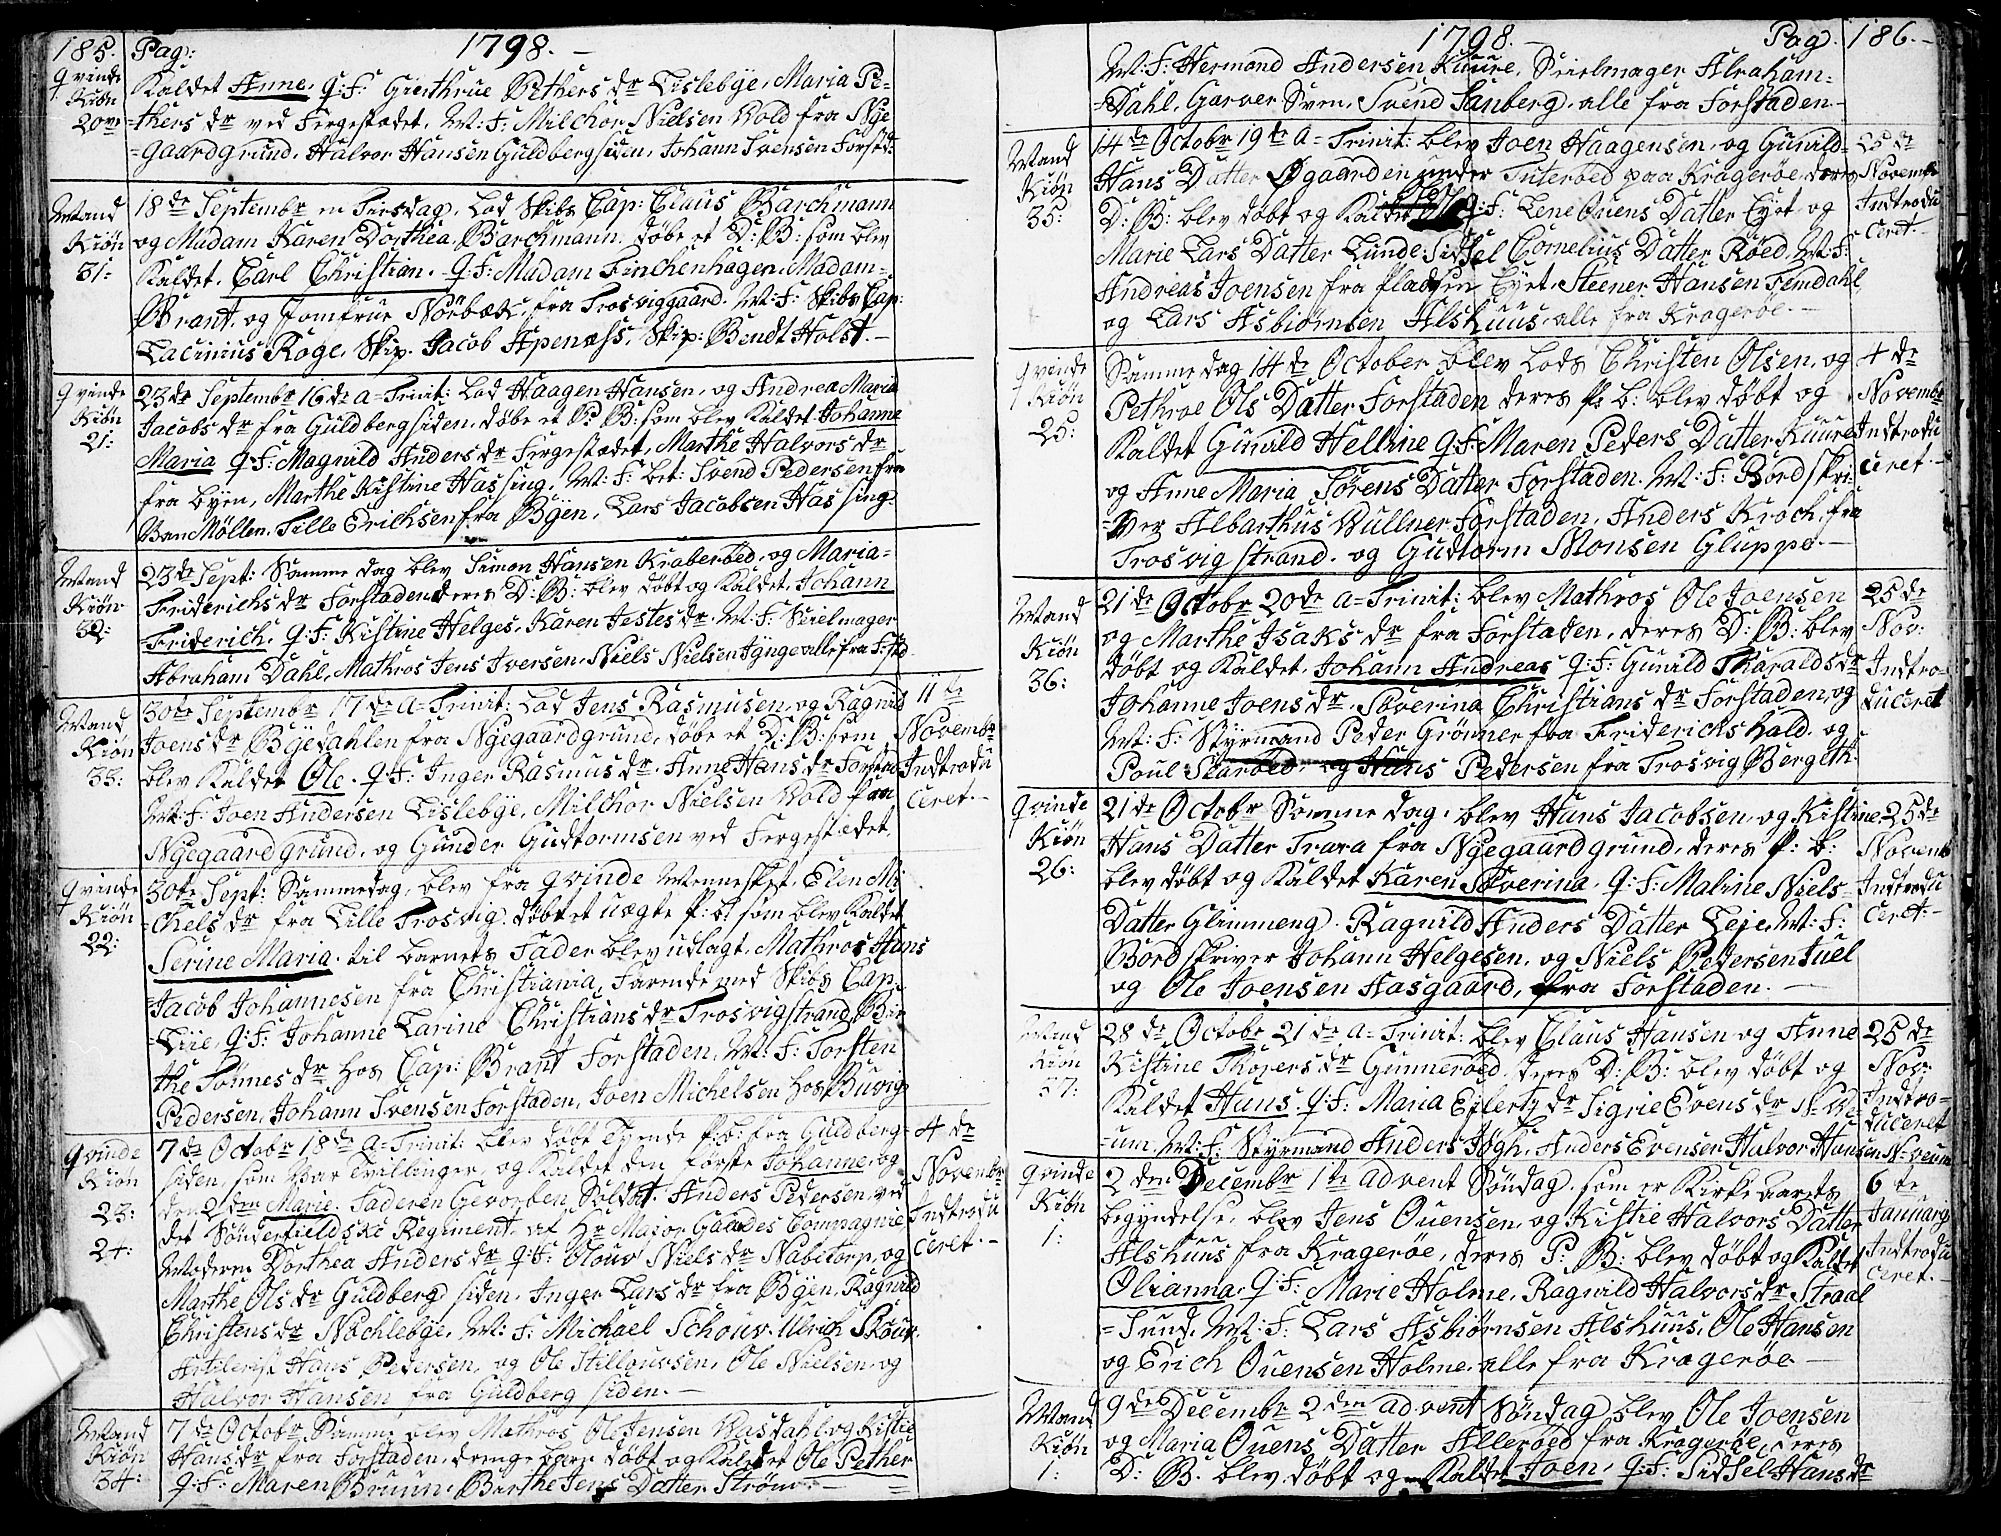 185. Pag: 1798. —
Qvinde
Kiøn
20ve
Kaldet Anne. Q: F: Giørthrue Pethers dr Lislebye, Maria Pe-
=thers dr ved Fergestædet. M: F: Milchor Nielsen Wold fra Nye
=gaardgrund, Halvor Hansen Guldbergsiden, Johann Svensen Forstd:
Mand
Kiøn
31:
18de Septembr en Tirsdag. Lod Skibs Cap: Claus Barchmann
og Madam Karen Dorthea Barchmann døbe et D: B: som blev
Kaldet. Carl Christian. Q: F: Madam Finchenhagen, Madam-
Brant. og Jomfrue Nörbæk, fra Trosviggaard. M: F: Skibs Cap:
Lacinius Roge. Skip. Jacob Apenæss. Skip: Bendt Holst. —
Qvinde
Kiøn
21:
23de Septembr 16de a=Trinit: Lod Haagen Hansen, og Andrea Maria
Jacobs dr fra Guldbergsiden, døbe et P: B: som blev Kaldet Johanne
Maria Q: F: Magnild Anders dr Fergestædet, Marthe Halvors dr
fra byen, Marthe Kistine Hassing. M: F: bet: Svend Pedersen fra
Møllen. Tille Erichsen fra Byen, Lars Jacobsen Hassing.
Mand
Kiøn
32:
23de Sept: Samme dag blev Simon Hansen Kraberøed, og Maria=
Friderichs dr Forstaden deres D: B: blev døbt og Kaldet. Johann
=Friderich. Q: F: Kistine Helges, Karen Jestes dr M: F: Seielmager
Abraham Dahl, Mathros Jens Iversen, Niels Nielsen alle fra F:stad.
Mand
Kiøn
33:
30te Septembr 17de a=Trinit: Lod Jens Rasmusen, og Ragnild
Joens dr Byedahlen fra Nyegaardgrund, døbe et D: B: som
blev Kaldet Ole. Q: F: Inger Rasmus dr. Anne Hans dr Forstad
M: F: Joen Andersen Lislebye, Milchor Nielsen Wold fra
Nyegaardgrund, og Gunder Gudtormsen ved Fergestædet.
11te
Novembr
Indtrodu
ceret. —
Qvinde
Kiøn
22:
30te Sept: Sammedag, blev fra Qvinde Mennesket. Elen Mi
=chels dr fra Lille Trosvig. døbt et uægte P: b: som blev Kaldet
Serine Maria. til barnets Fader blev udlagt. Mathros Hans
=Jacob Johannesen fra Christiania, Farende med Skibs Cap:
=Liie, Q: F: Johanne Larine Christians dr Trosvigstrand, Bir
the Tönnes dr hos Cap: Brant Forstaden, M: F: Torsten
Pedersen, Johann Svensen Forstaden, Joen Michelsen hos Buvig
Qvinde
Kiøn
23:
24:
7de Octobr 18de a=Trinit: blev døbt Tvende P: b: fra Guldberg=
siden, som var Tvillinger, og Kaldet den første Johanne, og
den 2den Marie. Faderen Gevorben Soldat Anders Pedersen, ved
det Sönderfieldske Regiment. af Hr Major Gaades Compagnie
Moderen Dorthea Anders dr Q: F: Olouv Niels dr Nabetorp, og
Marthe Ols dr Guldberg siden, Inger Lars dr fra Byen, Ragnild
Christens dr Nachlebye, M: F: Michael Schouv, Ulrich Skouv.
Artilerist Hans Pedersen, og Ole Stillaugsen, Ole Nielsen, og
Halvor Hansen fra Guldberg siden. —
4de
Novembr
Indtrodu
ceret. —
Mand
Kiøn
34:
7de Octobr, Samme blev Mathros Ole Jensen Wasdahl og Kistie
Hans dr fra Forstaden, drenge barn døbt og Kaldet Ole Pether
Q: F: Maren Bruun, Birthe Jens Datter Ström. —
1798. — Pag. 186. —
M: F: Hermand Andersen Kuure, Seielmager Abraham=
=Dahl, Garver Sven, Svend Sanberg, alle fra Forstaden—
Mand
Kiøn
35:
14de Octobr 19te a=Trinit: blev Joen Haagensen, og Gunild=
Hans Datter Øgaarden under Teterøed paa Kragerøe, deres
D: B: blev døbt og Kaldet Q: F: Lene Ouens Datter Eyet og
Marie Lars Datter Lunde, Sidsel Cornelius Datter Röed, M: F:
Andreas Joensen fra Pladsen Eyet, Steener Hansen Femdahl,
og Lars Asbiørnsen Alshuus, alle fra Kragerøe. —
25de
Novembr
Indtrodu
ceret—
Qvinde
Kiøn
25:
Sammedag 14de October blev Lods Christen Olsen, og
Pethroe Ols Datter Forstaden deres P: b: blev døbt og
Kaldet Gunild Helline Q: F: Maren Peders Datter Kuure
og Anne Maria Sörens Datter Forstaden. M: F: Bordskri-
=ver Albarthus Wullner Forstaden, Anders Kroch, fra
Trosvig strand. og Gudtorm Monsen Gluppe. —
4de
Novembr
Indtrodu
ceret. —
Mand
Kiøn
36:
21de Octobr 20de a=Trinit: blev Mathros Ole Joensen
og Marthe Isaks dr fra Forstaden, deres D: B: blev
døbt og Kaldet. Johann Andreas Q: F: Gunild Tharalds dr
Johanne Joens dr. Severina Christians dr Forstaden, og
M: F: Styrmand Peder Grönner fra Friderichshald. og
Poul Skarøed, og Hans Pedersen fra Trosvig Bergeth.
25de
Nov:
Indtro-
duceret
Qvinde
Kiøn
26:
21de Octobr Samme dag, blev Hans Jacobsen, og Kistine
Hans Datter Trara fra Nyegaardgrund, deres P: b:
blev døbt og Kaldet Karen Severina, Q: F: Maline Niels-
Datter Glimmeng. Ragnild Anders Datter Leie. M: F:
Bordskriver Johann Helgesen, og Niels Pedersen Juel
og Ole Joensen Aasgaard, fra Forstaden. —
25de
Novemb
Indtrodu
ceret. —
Mand
Kiøn
37:
28de Octobr 21de a=Trinit: blev Claus Hansen og Anne
Kistine Thoers dr Gunnerøed. deres D: B: blev døbt og
Kaldet Hans. Q: F: Maria Eylerts dr Sigrie Evens dr N: We-
=um. M: F: Styrmand Anders Högh. Anders Evensen Halvor Hansen N: Veum
25de
Nov:
Indtro=
duceret
Qvinde
Kiøn
1:
2den Decembr 1te advent Söndag. som er Kirke Aarets
begyndelse, blev Jens Ouensen, og Kistie Halvors Datter
Alshuus fra Kragerøe, deres P: B: blev døbt og Kaldet
Olianna. Q: F: Marie Holme, Ragnild Halvors dr Straal
=sund, M: F: Lars Asbiørnsen Alshuus, Ole Hansen
og Erich Ouensen Holme, alle fra Kragerøe —
6te
Januarij
Indtrodu
ceret. —
Mand
Kiøn
1:
9de Decembr 2den advent Söndag blev Ole Joensen
og Maria Ouens Datter Allerøed fra Kragerøe, deres
D: B. blev døbt og Kaldet Joen, Q: F: Sidsel Hans dr